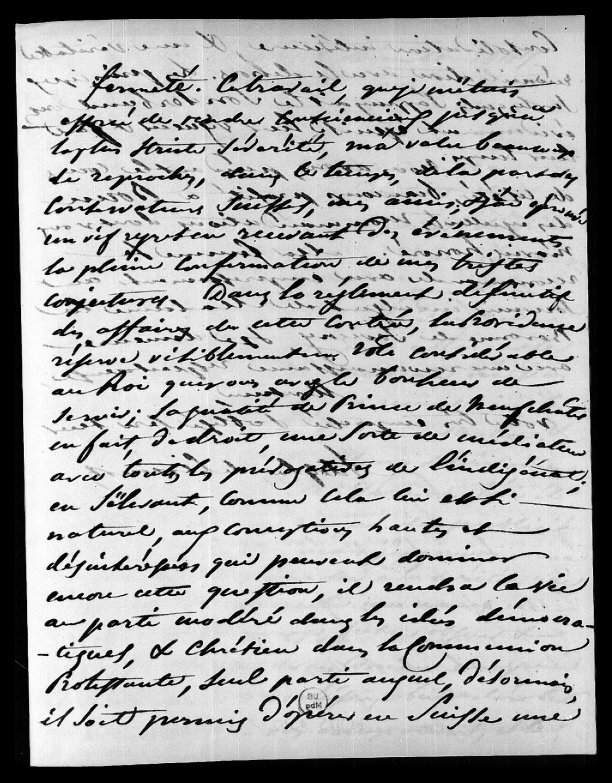 fermeté. Ce travail, que je m'étais
efforcé de rendre consciencieux jusqu'à
la plus stricte sévérité, m'a valu beaucoup
de reproches, dans le temps, de la part des
Conservateurs Suisses, mes amis;
reçu des évènements
la pleine confirmation de mes tristes
conjectures. Dans le réglement définitif
des affaires de cette contrée, la Providence
réserve visiblement un rôle considérable
au Roi que vous avez le bonheur de
servir. La qualité de Prince de Neufchâtel
en fait de droit une sorte de médiateur
avec toutes les prérogatives de l'indigénat;
en s'élevant, comme cela lui est si
naturel, aux conceptions hautes et
désintéressées qui peuvent dominer
encore cette question, il rendra la vie
au parti modéré dans les idées démocra-
-tiques, & Chrétien dans la Communion
Protestante, seul parti auquel, désormais,
il soit permis d'opérer en Suisse une